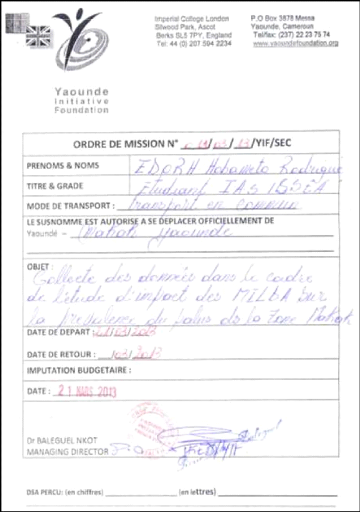 Imperial College London
Silwood Park, Ascot
Berks SL5 7PY, England
Tel: 44 (0) 207 594 2234
P.O Box 3878 Messa
Yaounde, Cameroun
Tel/fax: (237) 22 23 75 74
www.yaoundefoundation.org
Yaounde
Initiative
Foundation
ORDRE DE MISSION N° /03/13/YIF/SEC
PRENOMS & NOMS
TITRE & GRADE Etudiant IAS ISSEA
MODE DE TRANSPORT : Transport en commun
LE SUSNOMME EST AUTORISE A SE DEPLACER OFFICIELLEMENT DE
Yaoundé – Makak Yaounde
OBJET :
Collecte des données dans le cadre
de l'étude d'impact des MILDA sur
la prévalence du palus ds la zone Makak
DATE DE DEPART : /03/2013
DATE DE RETOUR : /03/2013
IMPUTATION BUDGETAIRE :
DATE : 21 MARS 2013
Dr BALEGUEL NKOT
MANAGING DIRECTOR
DSA PERCU: (en chiffres) (en lettres)